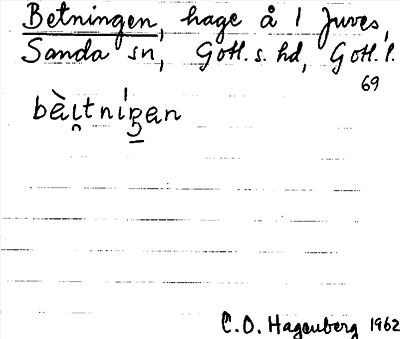 Betningen, hage å 1 Juves,
Sanda sn, Gotl. s. hd, Gotl. l.
69
bèi̯tniŋən
C. O. Hagenberg 1962